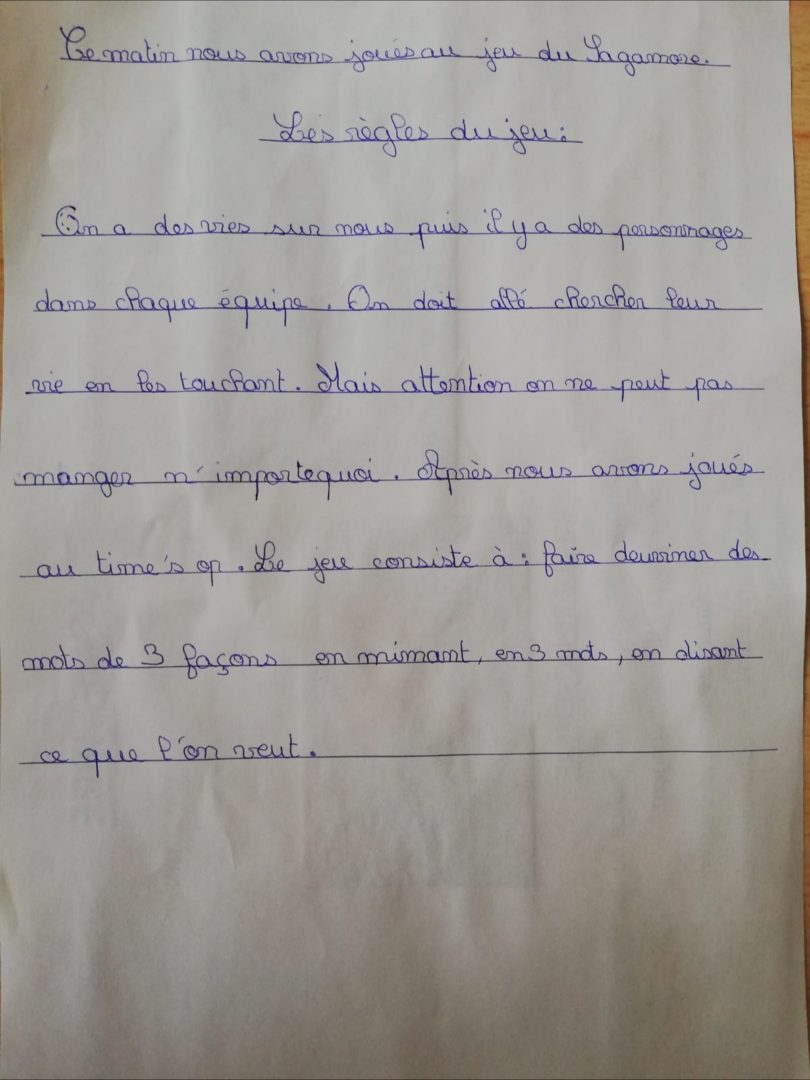 Ce matin nous avons joués au jeu du Sagamore.
Les règles du jeu :
On a des vies sur nous puis il y a des personnages
dans chaque équipe. On doit allé chercher leur
vie en les touchant. Mais attention on ne peut pas
manger n'importequoi. Après nous avons joués
au time's op. Le jeu consiste à : faire deuviner des
mots de 3 façons en mimant, en 3 mots, en disant
ce que l'on veut.